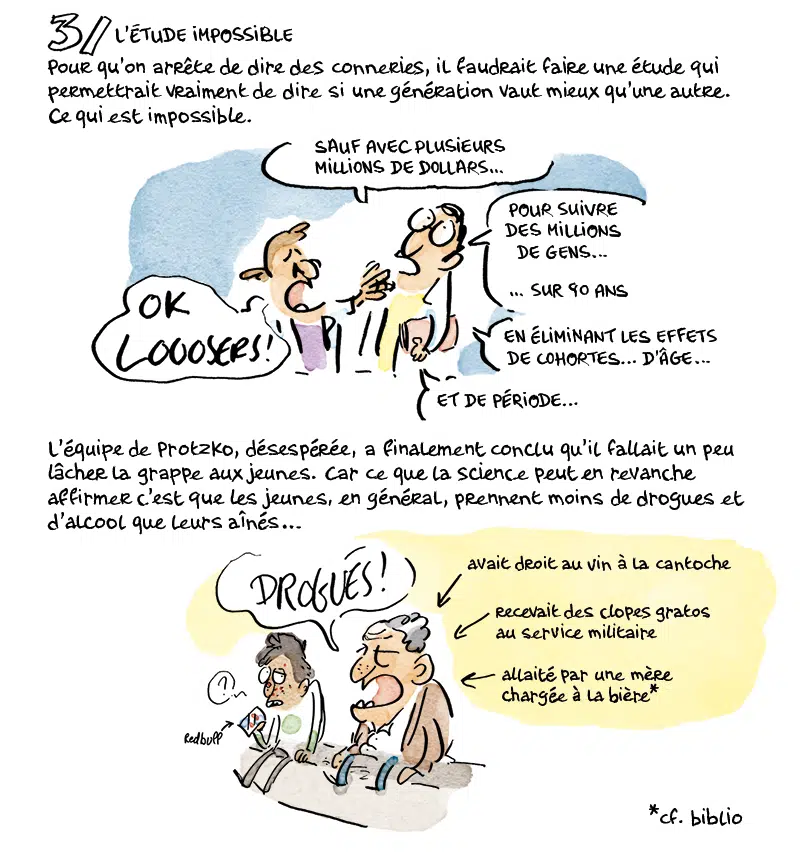 3/ L'ÉTUDE IMPOSSIBLE
Pour qu'on arrête de dire des conneries, il faudrait faire une étude qui
permettrait vraiment de dire si une génération vaut mieux qu'une autre.
Ce qui est impossible.
SAUF AVEC PLUSIEURS
MILLIONS DE DOLLARS...
POUR SUIVRE
DES MILLIONS
DE GENS...
... SUR 90 ANS
OK
LOOOSERS!
EN ÉLIMINANT LES EFFETS
DE COHORTES... D'ÂGE...
ET DE PÉRIODE...
L'équipe de Protzko, désespérée, a finalement conclu qu'il fallait un peu
lâcher la grappe aux jeunes. Car ce que la science peut en revanche
affirmer c'est que les jeunes, en général, prennent moins de drogues et
d'alcool que leurs aînés...
DROGUÉS!
avait droit au vin à la cantoche
recevait des clopes gratos
au service militaire
allaité par une mère
chargée à la bière*
?
Redbull
*cf. biblio